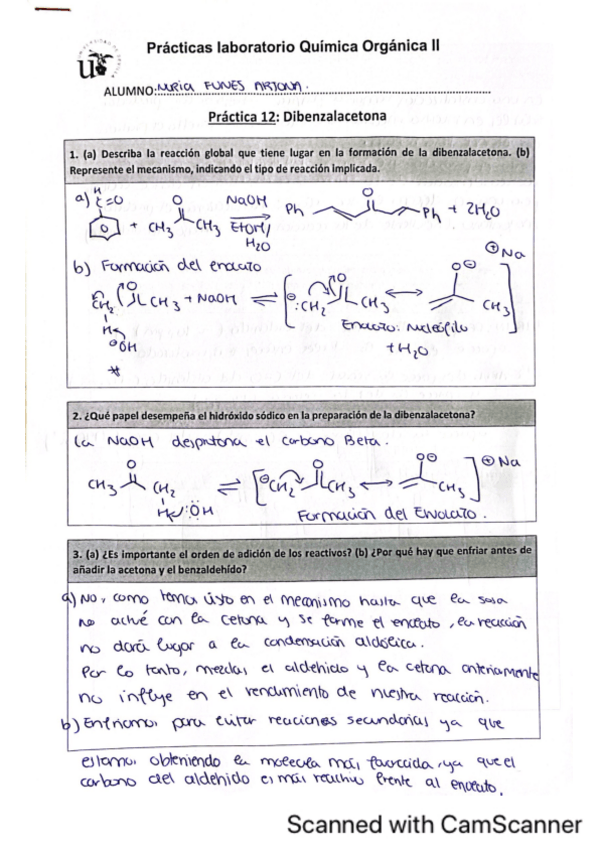 Prácticas laboratorio Química Orgánica II
ALUMNO: NURIA FUNES ARJONA.
Práctica 12: Dibenzalacetona
1. (a) Describa la reacción global que tiene lugar en la formación de la dibenzalacetona. (b)
Represente el mecanismo, indicando el tipo de reacción implicada.
a) H
C=O O NaOH O
+ CH3 CH3 EtOH/ Ph Ph + 2H2O
H2O
b) Formación del enolato
⊕Na
O O O⊖
CH2 CH3 + NaOH ⇌ [⊖:CH2 CH3 ↔ CH3]
H Enolato: nucleófilo
⊖OH + H2O
*
2. ¿Qué papel desempeña el hidróxido sódico en la preparación de la dibenzalacetona?
La NaOH desprotona el carbono Beta.
O O O⊖ ⊕Na
CH3 CH2 ⇌ [⊖CH2 CH3 ↔ CH3]
H :ÖH Formación del Enolato.
3. (a) ¿Es importante el orden de adición de los reactivos? (b) ¿Por qué hay que enfriar antes de
añadir la acetona y el benzaldehído?
a) No, como hemos visto en el mecanismo hasta que la sosa
no actué con la cetona y se forme el enolato, la reacción
no dará lugar a la condensación aldólica.
Por lo tanto, mezclar el aldehido y la cetona anteriormente
no influye en el rendimiento de nuestra reacción.
b) Enfriamos para evitar reacciones secundarias ya que
estamos obteniendo la molecula más favorecida, ya que el
carbono del aldehido es más reactivo frente al enolato.
Scanned with CamScanner